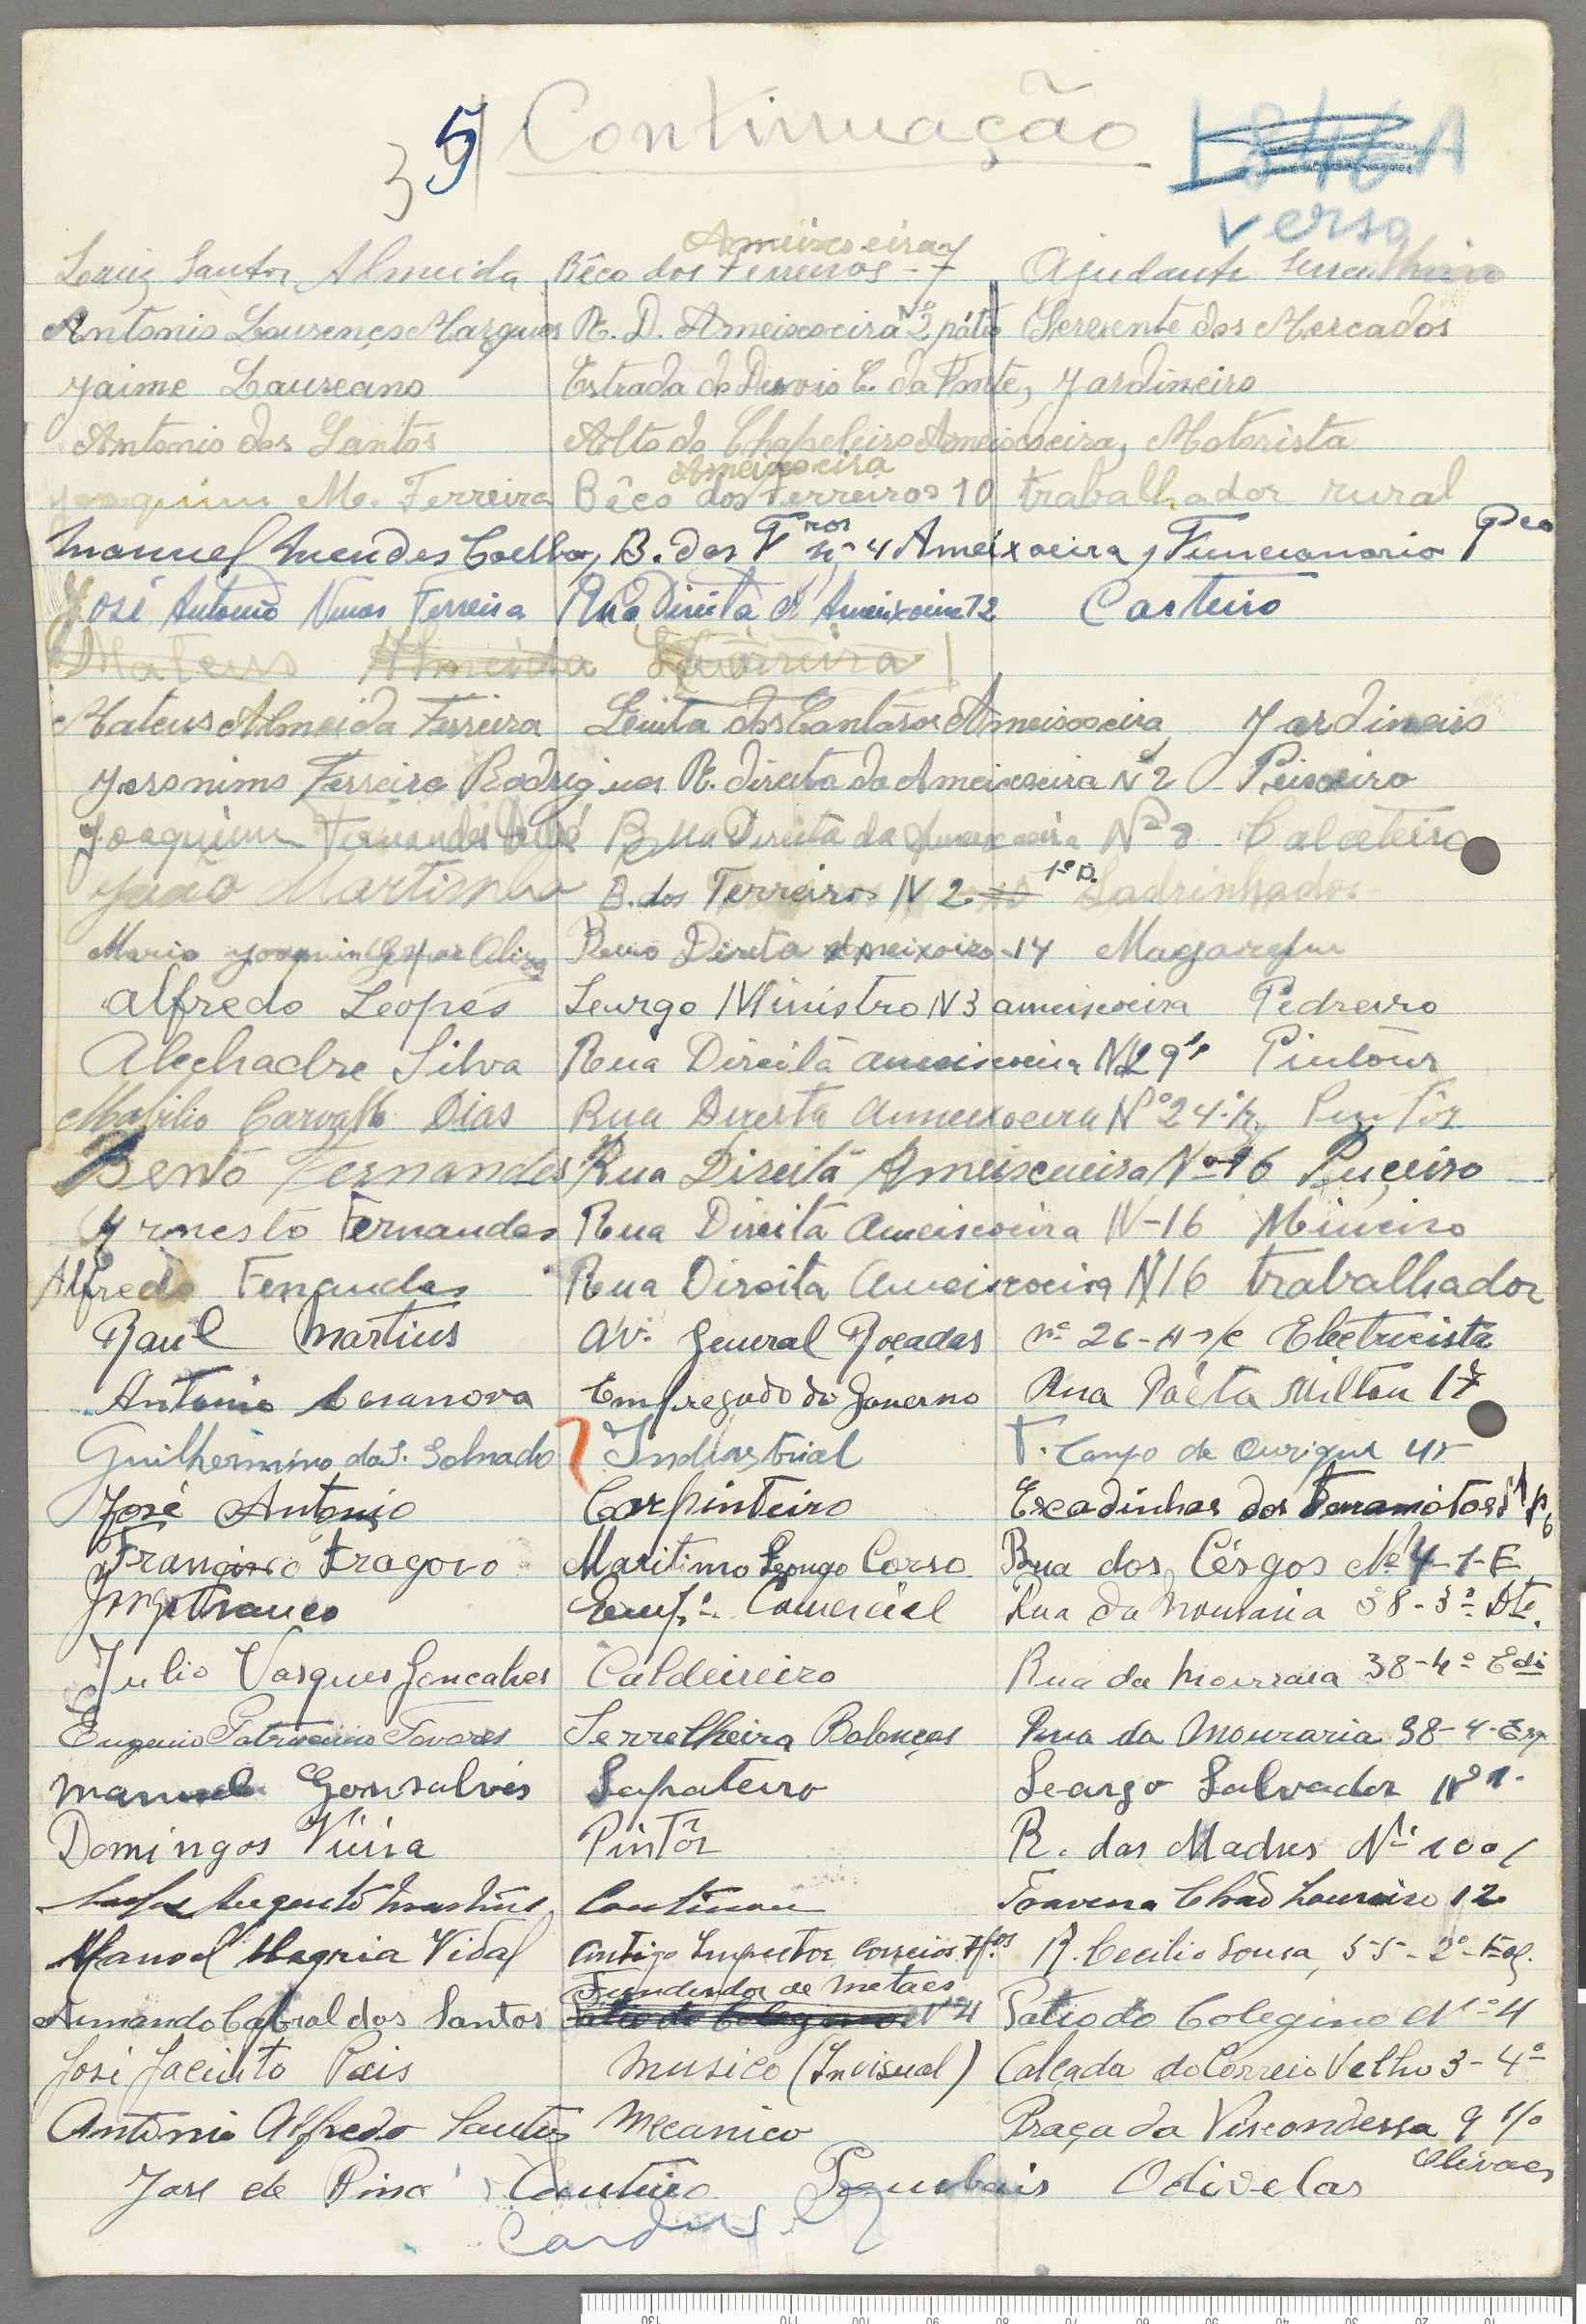 35 Continuação
verso
Ameixoeira
Luiz Santos Almeida Bêco dos Ferreiros - 7 Ajudante Serralheiro
Antonio Lourenço Marques R. D. Ameixoeira Nº 2 pátio Servente dos Mercados
Jaime Laureano Estrada do Desvio C. da Fonte, Jardineiro
Antonio dos Santos Alto do Chapeleiro Ameixoeira, Motorista
Ameixoeira
Joaquim M. Ferreira Bêco dos Ferreiros 10 trabalhador rural
Manuel Mendes Coelho, B. dos Fros nº 4 Ameixoeira, Funcionario Pco
José Antonio Ferreira Rua Direita d' Ameixoeira 72 Carteiro
Mateus Almeida
Mateus Almeida Ferreira Ameixoeira Jardineiro
Jeronimo Ferreira Rodrigues R. direita da Ameixoeira Nº 2 Peixeiro
Joaquim Fernandes Rua Direita da Ameixoeira Nº 8 Calceteiro
João Martinho B. dos Ferreiros N 2 1º D. Ladrinhador
Mario Joaquim Rua Direta Ameixoeira 14 Magarefe
Alfredo Lopes Lurgo Ministro N 3 ameixoeira Pedreiro
Silva Rua Direità ameixoeira Pintour
Carvalho Dias Rua Direita Ameixoeira Nº 24 Pintôr
Bento Fernandes Rua Direità Ameixueira Nº 16 Puçeiro
Ernesto Fernandes Rua Direità ameixoeira N-16 Mineiro
Alfredo Fernandes Rua Direita Ameixoeira Nº 16 trabalhador
Raul Martins Av. General Roçadas nº 26-A r/c Electricista
Antonio Casanova Empregado do Governo Rua Poéta Milton 17
Guilhermino da S. Solnado Industrial T. Campo de Ourique 45
José Antonio Carpinteiro Escadinhas dos Terramotos
Francisco Fragoso Maritimo Longo Corso Rua dos Cêsgos Nº 4-1-E
Jorge Franco Empº Comercial Rua da Mouraria 38-3º Dtº.
Julio Vasques Goncalves Caldeireiro Rua da Mouraria 38-4º Edº
Eugenio Patrocinio Tavares Serrelheiro Balanças Rua da Mouraria 38-4-Esq
Manuel Gonsalves Sapateiro Leargo Salvador Nº 1
Domingos Vieira Pintôr R. das Madres Nº 100
Augusto Martins Continuo Travessa Chão Loureiro 12
Manoel Vidal Antigo Inspector Correios R. Cecilio Sousa, 55-2º-Esq.
Fundidor de Metaes
Armando Cabral dos Santos Patio do Colegino Nº 4 Patio do Colegino Nº 4
José Jacinto Pais Musico (Invisual) Calçada do Correio Velho 3-4º
Antonio Alfredo Santos Mecanico Praça da Viscondessa 9 r/c
Olivaes
José de Pina Cantiro Pombais Odivelas